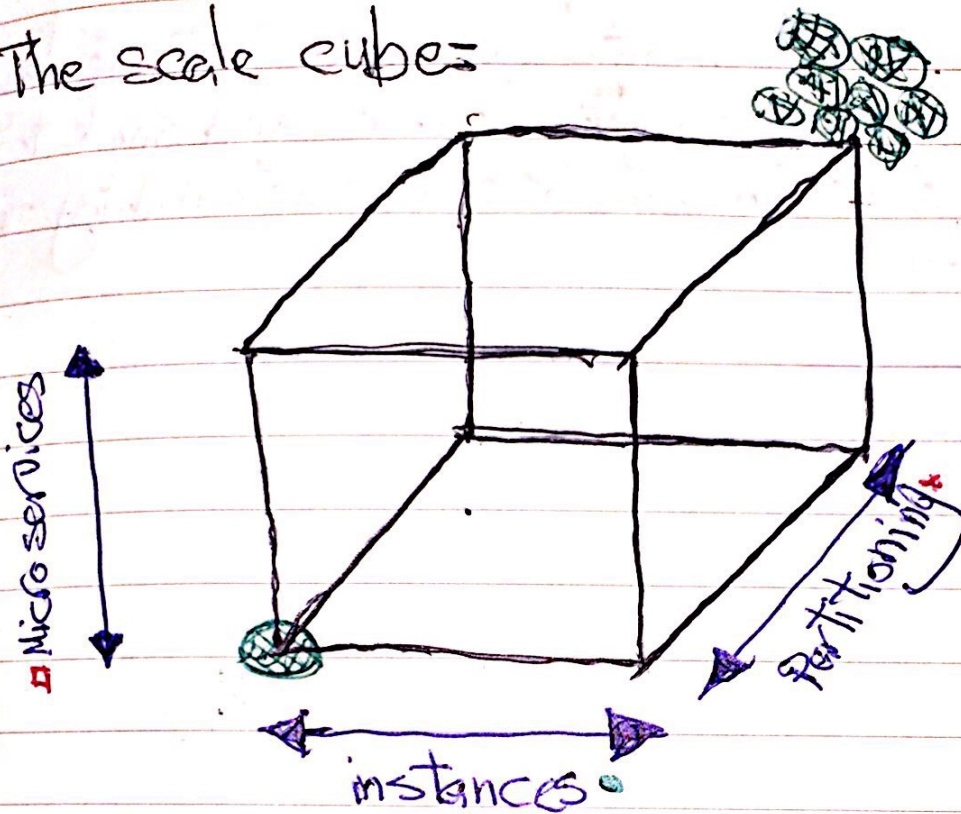 The scale cube=
Microservices
Partitioning
instances